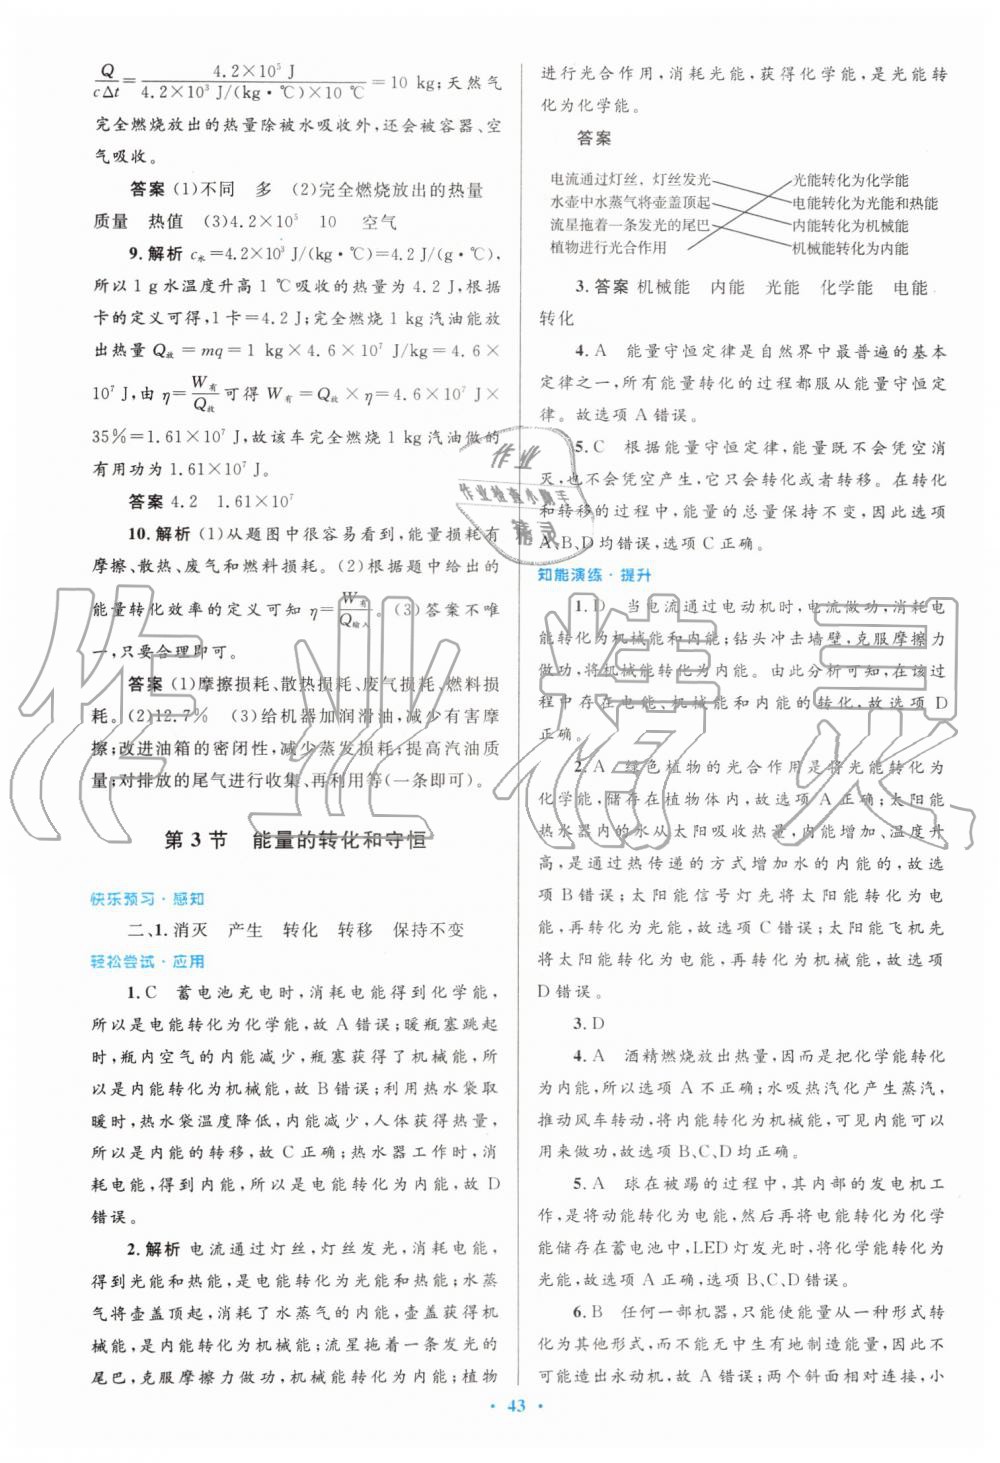 Q/cΔt＝4.2×10⁵ J/4.2×10³ J/(kg·℃)×10 ℃＝10 kg；天然气
完全燃烧放出的热量除被水吸收外，还会被容器、空
气吸收。
答案 (1)不同 多 (2)完全燃烧放出的热量
质量 热值 (3)4.2×10⁵ 10 空气
9.解析 c水＝4.2×10³ J/(kg·℃)＝4.2 J/(g·℃)，
所以1 g水温度升高1 ℃吸收的热量为4.2 J，根据
卡的定义可得，1卡＝4.2 J；完全燃烧1 kg汽油能放
出热量Q放＝mq＝1 kg×4.6×10⁷ J/kg＝4.6×
10⁷ J，由η＝W有/Q放可得W有＝Q放×η＝4.6×10⁷ J×
35%＝1.61×10⁷ J，故该车完全燃烧1 kg汽油做的
有用功为1.61×10⁷ J。
答案 4.2 1.61×10⁷
10.解析 (1)从题图中很容易看到，能量损耗有
摩擦、散热、废气和燃料损耗。(2)根据题中给出的
能量转化效率的定义可知η＝W有/Q输入。(3)答案不唯
一，只要合理即可。
答案 (1)摩擦损耗、散热损耗、废气损耗、燃料损
耗。(2)12.7% (3)给机器加润滑油，减少有害摩
擦；改进油箱的密闭性，减少蒸发损耗；提高汽油质
量；对排放的尾气进行收集、再利用等(一条即可)。
第3节 能量的转化和守恒
快乐预习·感知
二、1.消灭 产生 转化 转移 保持不变
轻松尝试·应用
1.C 蓄电池充电时，消耗电能得到化学能，
所以是电能转化为化学能，故A错误；暖瓶塞跳起
时，瓶内空气的内能减少，瓶塞获得了机械能，所
以是内能转化为机械能，故B错误；利用热水袋取
暖时，热水袋温度降低，内能减少，人体获得热量，
所以是内能的转移，故C正确；热水器工作时，消
耗电能，得到内能，所以是电能转化为内能，故D
错误。
2.解析 电流通过灯丝，灯丝发光，消耗电能，
得到光能和热能，是电能转化为光能和热能；水蒸
气将壶盖顶起，消耗了水蒸气的内能，壶盖获得机
械能，内能转化为机械能；流星拖着一条发光的
尾巴，克服摩擦力做功，机械能转化为内能；植物
进行光合作用，消耗光能，获得化学能，是光能转
化为化学能。
答案
电流通过灯丝，灯丝发光 光能转化为化学能
水壶中水蒸气将壶盖顶起 电能转化为光能和热能
流星拖着一条发光的尾巴 内能转化为机械能
植物进行光合作用 机械能转化为内能
3.答案 机械能 内能 光能 化学能 电能
转化
4.A 能量守恒定律是自然界中最普遍的基本
定律之一，所有能量转化的过程都服从能量守恒定
律。故选项A错误。
5.C 根据能量守恒定律，能量既不会凭空消
灭，也不会凭空产生，它只会转化或者转移。在转化
和转移的过程中，能量的总量保持不变，因此选项
A、B、D均错误，选项C正确。
知能演练·提升
1.D 当电流通过电动机时，电流做功，消耗电
能转化为机械能和内能；钻头冲击墙壁，克服摩擦力
做功，将机械能转化为内能。由此分析可知，在该过
程中存在电能、机械能和内能的转化，故选项D
正确。
2.A 绿色植物的光合作用是将光能转化为
化学能，储存在植物体内，故选项A正确；太阳能
热水器内的水从太阳吸收热量，内能增加、温度升
高，是通过热传递的方式增加水的内能的，故选
项B错误；太阳能信号灯先将太阳能转化为电
能，再转化为光能，故选项C错误；太阳能飞机先
将太阳能转化为电能，再转化为机械能，故选项
D错误。
3.D
4.A 酒精燃烧放出热量，因而是把化学能转化
为内能，所以选项A不正确；水吸热汽化产生蒸汽，
推动风车转动，将内能转化为机械能，可见内能可以
用来做功，故选项B、C、D均正确。
5.A 球在被踢的过程中，其内部的发电机工
作，是将动能转化为电能，然后再将电能转化为化学
能储存在蓄电池中，LED灯发光时，将化学能转化为
光能，故选项A正确，选项B、C、D错误。
6.B 任何一部机器，只能使能量从一种形式转
化为其他形式，而不能无中生有地制造能量，因此不
可能造出永动机，故A错误；两个斜面相对连接，小
· 43 ·
作业
作业检查小助手
精灵
作业精灵